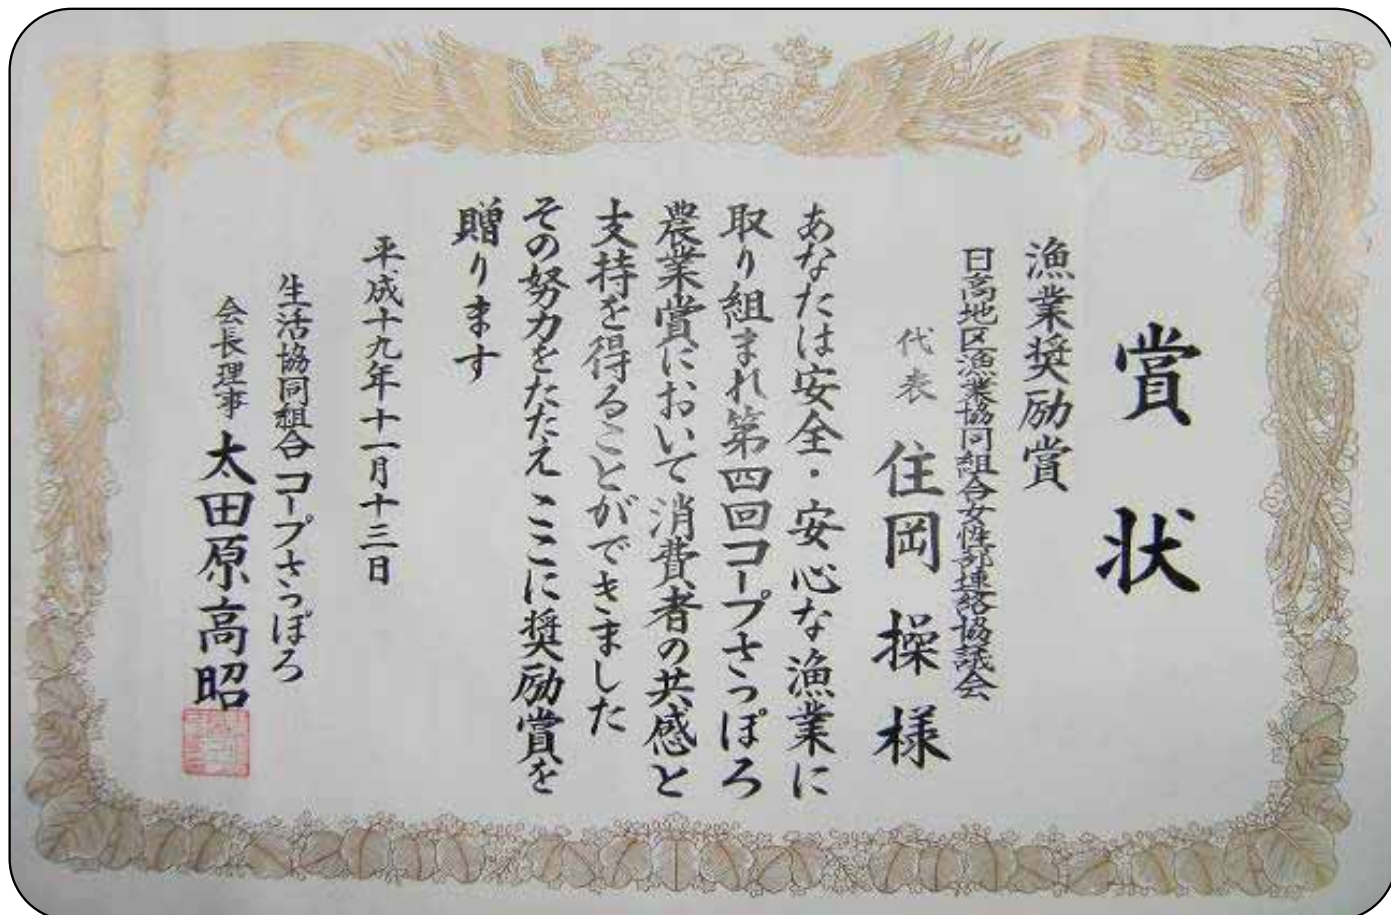 賞状
漁業奨励賞
日高地区漁業協同組合女性部連絡協議会
代表 住岡 操 様
あなたは安全・安心な漁業に
取り組まれ第四回コープさっぽろ
農業賞において消費者の共感と
支持を得ることができました
その努力をたたえここに奨励賞を
贈ります
平成十九年十一月十三日
生活協同組合コープさっぽろ
会長理事 太田原高昭